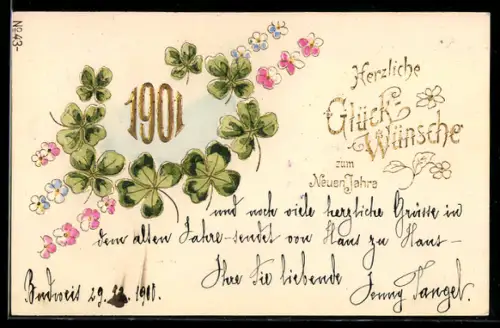 No 43-
1901
Herzliche
Glück-
Wünsche
zum
Neuen Jahre
und noch viele herzliche Grüsse in
dem alten Jahre sendet von Haus zu Haus -
Ihre Sie liebende Jenny
Budweis 29. 12. 1900.